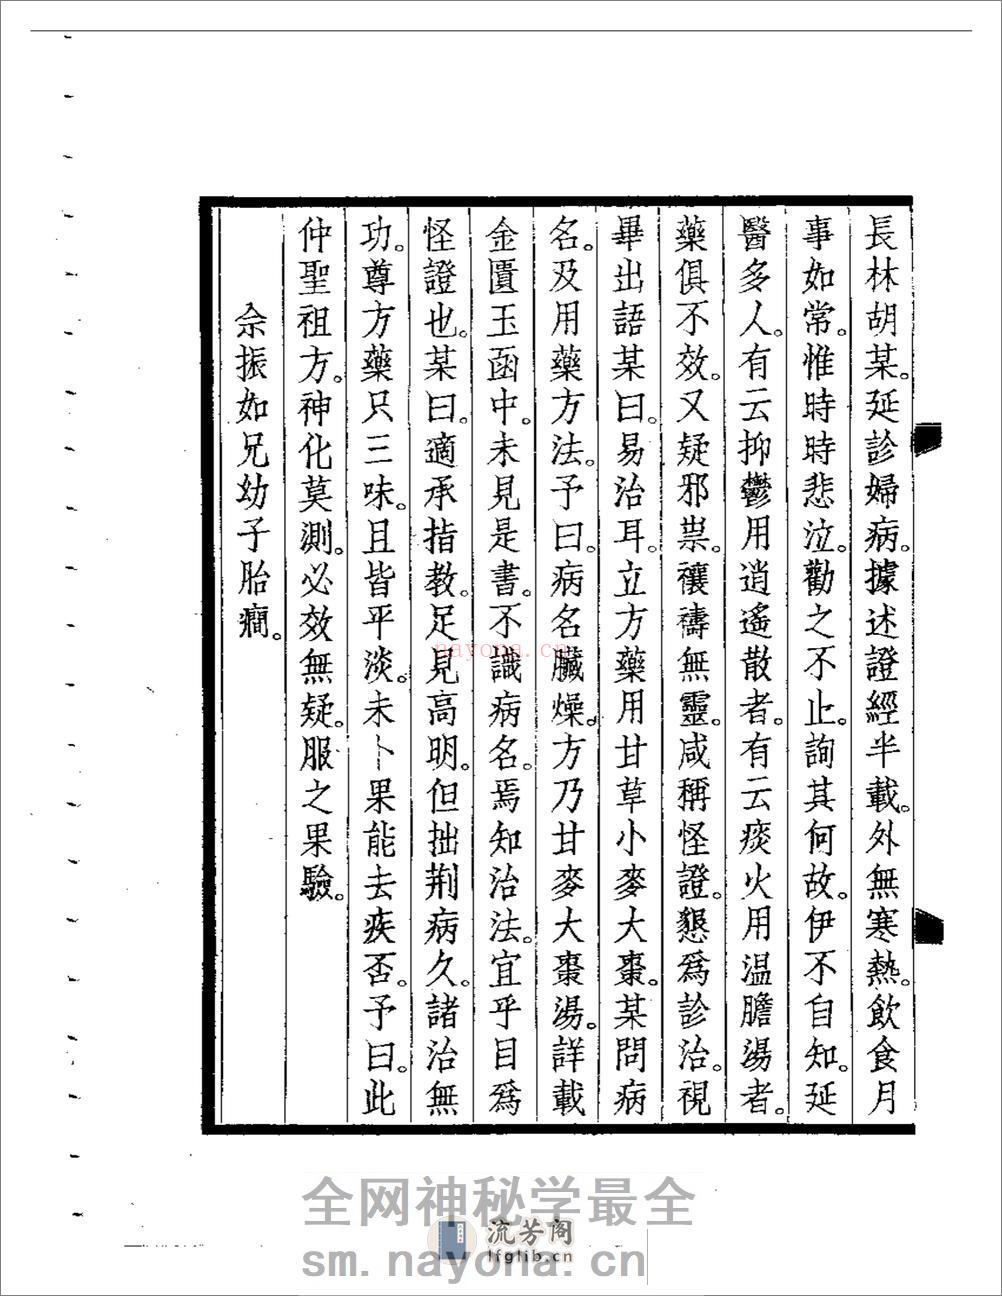 長林胡某。延診婦病。據述證經半載。外無寒熱。飲食月
事如常。惟時時悲泣。勸之不止。詢其何故。伊不自知。延
醫多人。有云抑鬱用逍遙散者。有云痰火用温膽湯者。
藥俱不效。又疑邪祟。禳禱無靈。咸稱怪證。懇爲診治。視
畢出語某曰。易治耳。立方藥用甘草小麥大棗。某問病
名。及用藥方法。予曰。病名臟燥。方乃甘麥大棗湯。詳載
金匱玉函中。未見是書。不識病名。焉知治法。宜乎目爲
怪證也。某曰。適承指教。足見高明。但拙荆病久。諸治無
功。尊方藥只三味。且皆平淡。未卜果能去疾否。予曰。此
仲聖祖方。神化莫測。必效無疑。服之果驗。
余振如兄幼子胎癎。
nayona.cn
全网神秘学最全
流芳阁
lfglib.cn
sm.nayona.cn